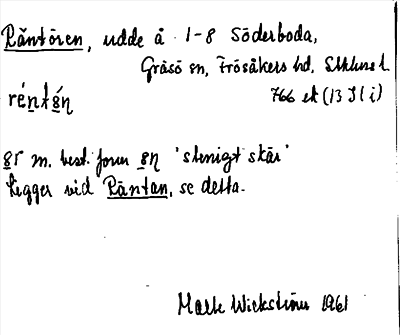 Räntören, udde å 1-8 Söderboda,
Gräsö sn, Frösåkers hd, Sthlms l.
réntǿn 766 ek (13 I 1 i)
ør m. best. form øn 'stenigt skär'
Ligger vid Räntan, se detta.
Marke Wickström 1961